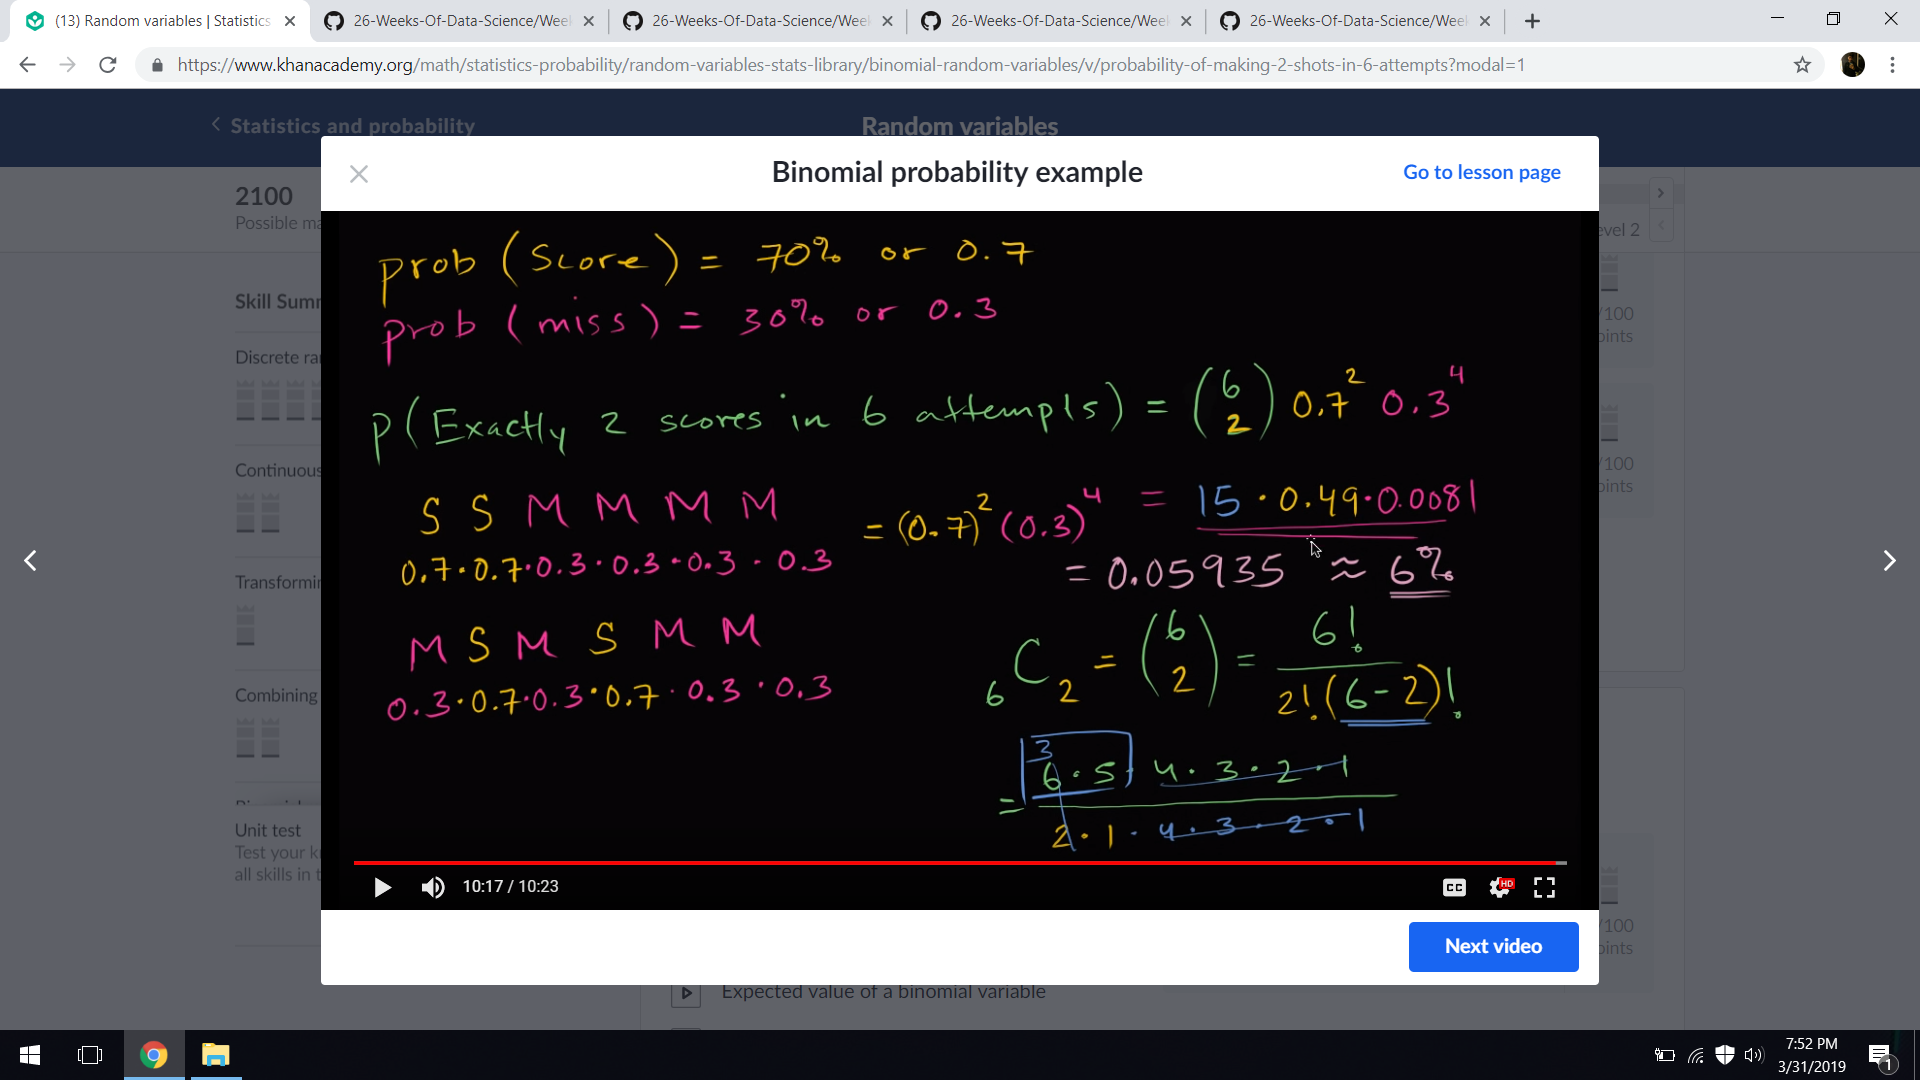 (13) Random variables | Statistics
26-Weeks-Of-Data-Science/Wee
26-Weeks-Of-Data-Science/Wee
26-Weeks-Of-Data-Science/Wee
26-Weeks-Of-Data-Science/Wee
https://www.khanacademy.org/math/statistics-probability/random-variables-stats-library/binomial-random-variables/v/probability-of-making-2-shots-in-6-attempts?modal=1
Statistics and probability
Random variables
2100
Possible ma
evel 2
Skill Summ
Discrete ra
Continuous
Transformin
Combining
Unit test
Test your k
all skills in t
/100
oints
/100
oints
/100
oints
Binomial probability example
Go to lesson page
prob (Score) = 70% or 0.7
prob (miss) = 30% or 0.3
P(Exactly 2 scores in 6 attempts) = (6 2) 0.7² 0.3⁴
S S M M M M = (0.7)² (0.3)⁴ = 15 · 0.49 · 0.0081
0.7 · 0.7 · 0.3 · 0.3 · 0.3 · 0.3
= 0.05935 ≈ 6%
M S M S M M
0.3 · 0.7 · 0.3 · 0.7 · 0.3 · 0.3
₆C₂ = (6 2) = 6! / 2!(6-2)!
3
= 6 · 5 · 4 · 3 · 2 · 1
2 · 1 · 4 · 3 · 2 · 1
10:17 / 10:23
CC
HD
Next video
Expected value of a binomial variable
7:52 PM
3/31/2019
1